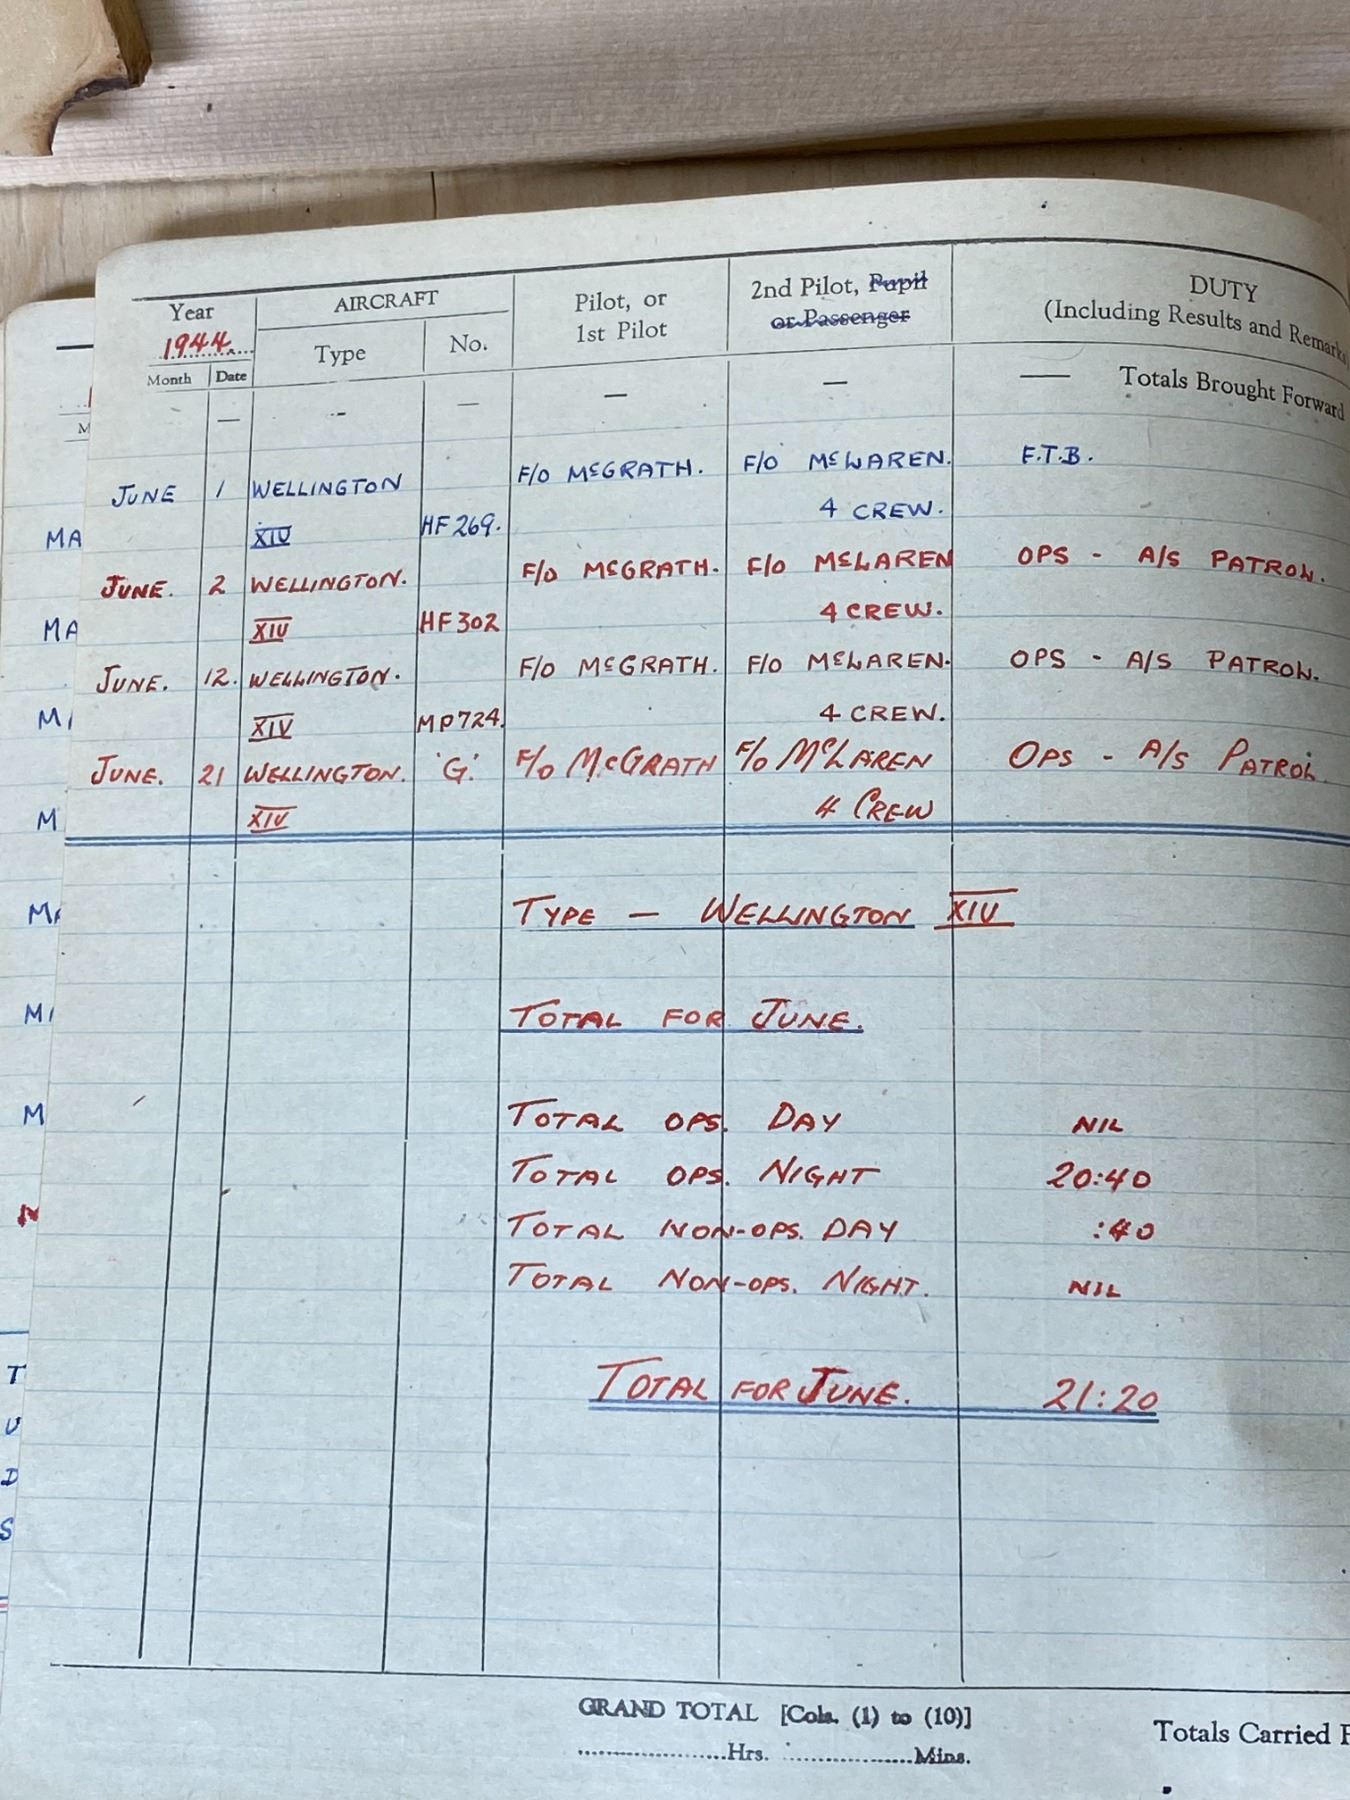 Year
AIRCRAFT
Pilot, or
1st Pilot
2nd Pilot, Pupil
or Passenger
DUTY
(Including Results and Remarks
1944
Type
No.
Month Date
— - — — — — Totals Brought Forward
JUNE 1 WELLINGTON F/O McGRATH. F/O McLAREN. F.T.B.
XIV HF269. 4 CREW.
JUNE. 2 WELLINGTON. F/O McGRATH. F/O McLAREN OPS - A/S PATROL.
XIV HF302 4 CREW.
JUNE. 12. WELLINGTON. F/O McGRATH. F/O McLAREN. OPS - A/S PATROL.
XIV MP724. 4 CREW.
JUNE. 21 WELLINGTON. 'G.' F/O McGRATH F/O McLAREN OPS - A/S PATROL
XIV 4 CREW
TYPE — WELLINGTON XIV
TOTAL FOR JUNE.
TOTAL OPS. DAY NIL
TOTAL OPS. NIGHT 20:40
TOTAL NON-OPS. DAY :40
TOTAL NON-OPS. NIGHT. NIL
TOTAL FOR JUNE. 21:20
GRAND TOTAL [Cols. (1) to (10)]
Hrs. Mins.
Totals Carried F
MA
MA
M
M
MA
M
M
T
U
D
S